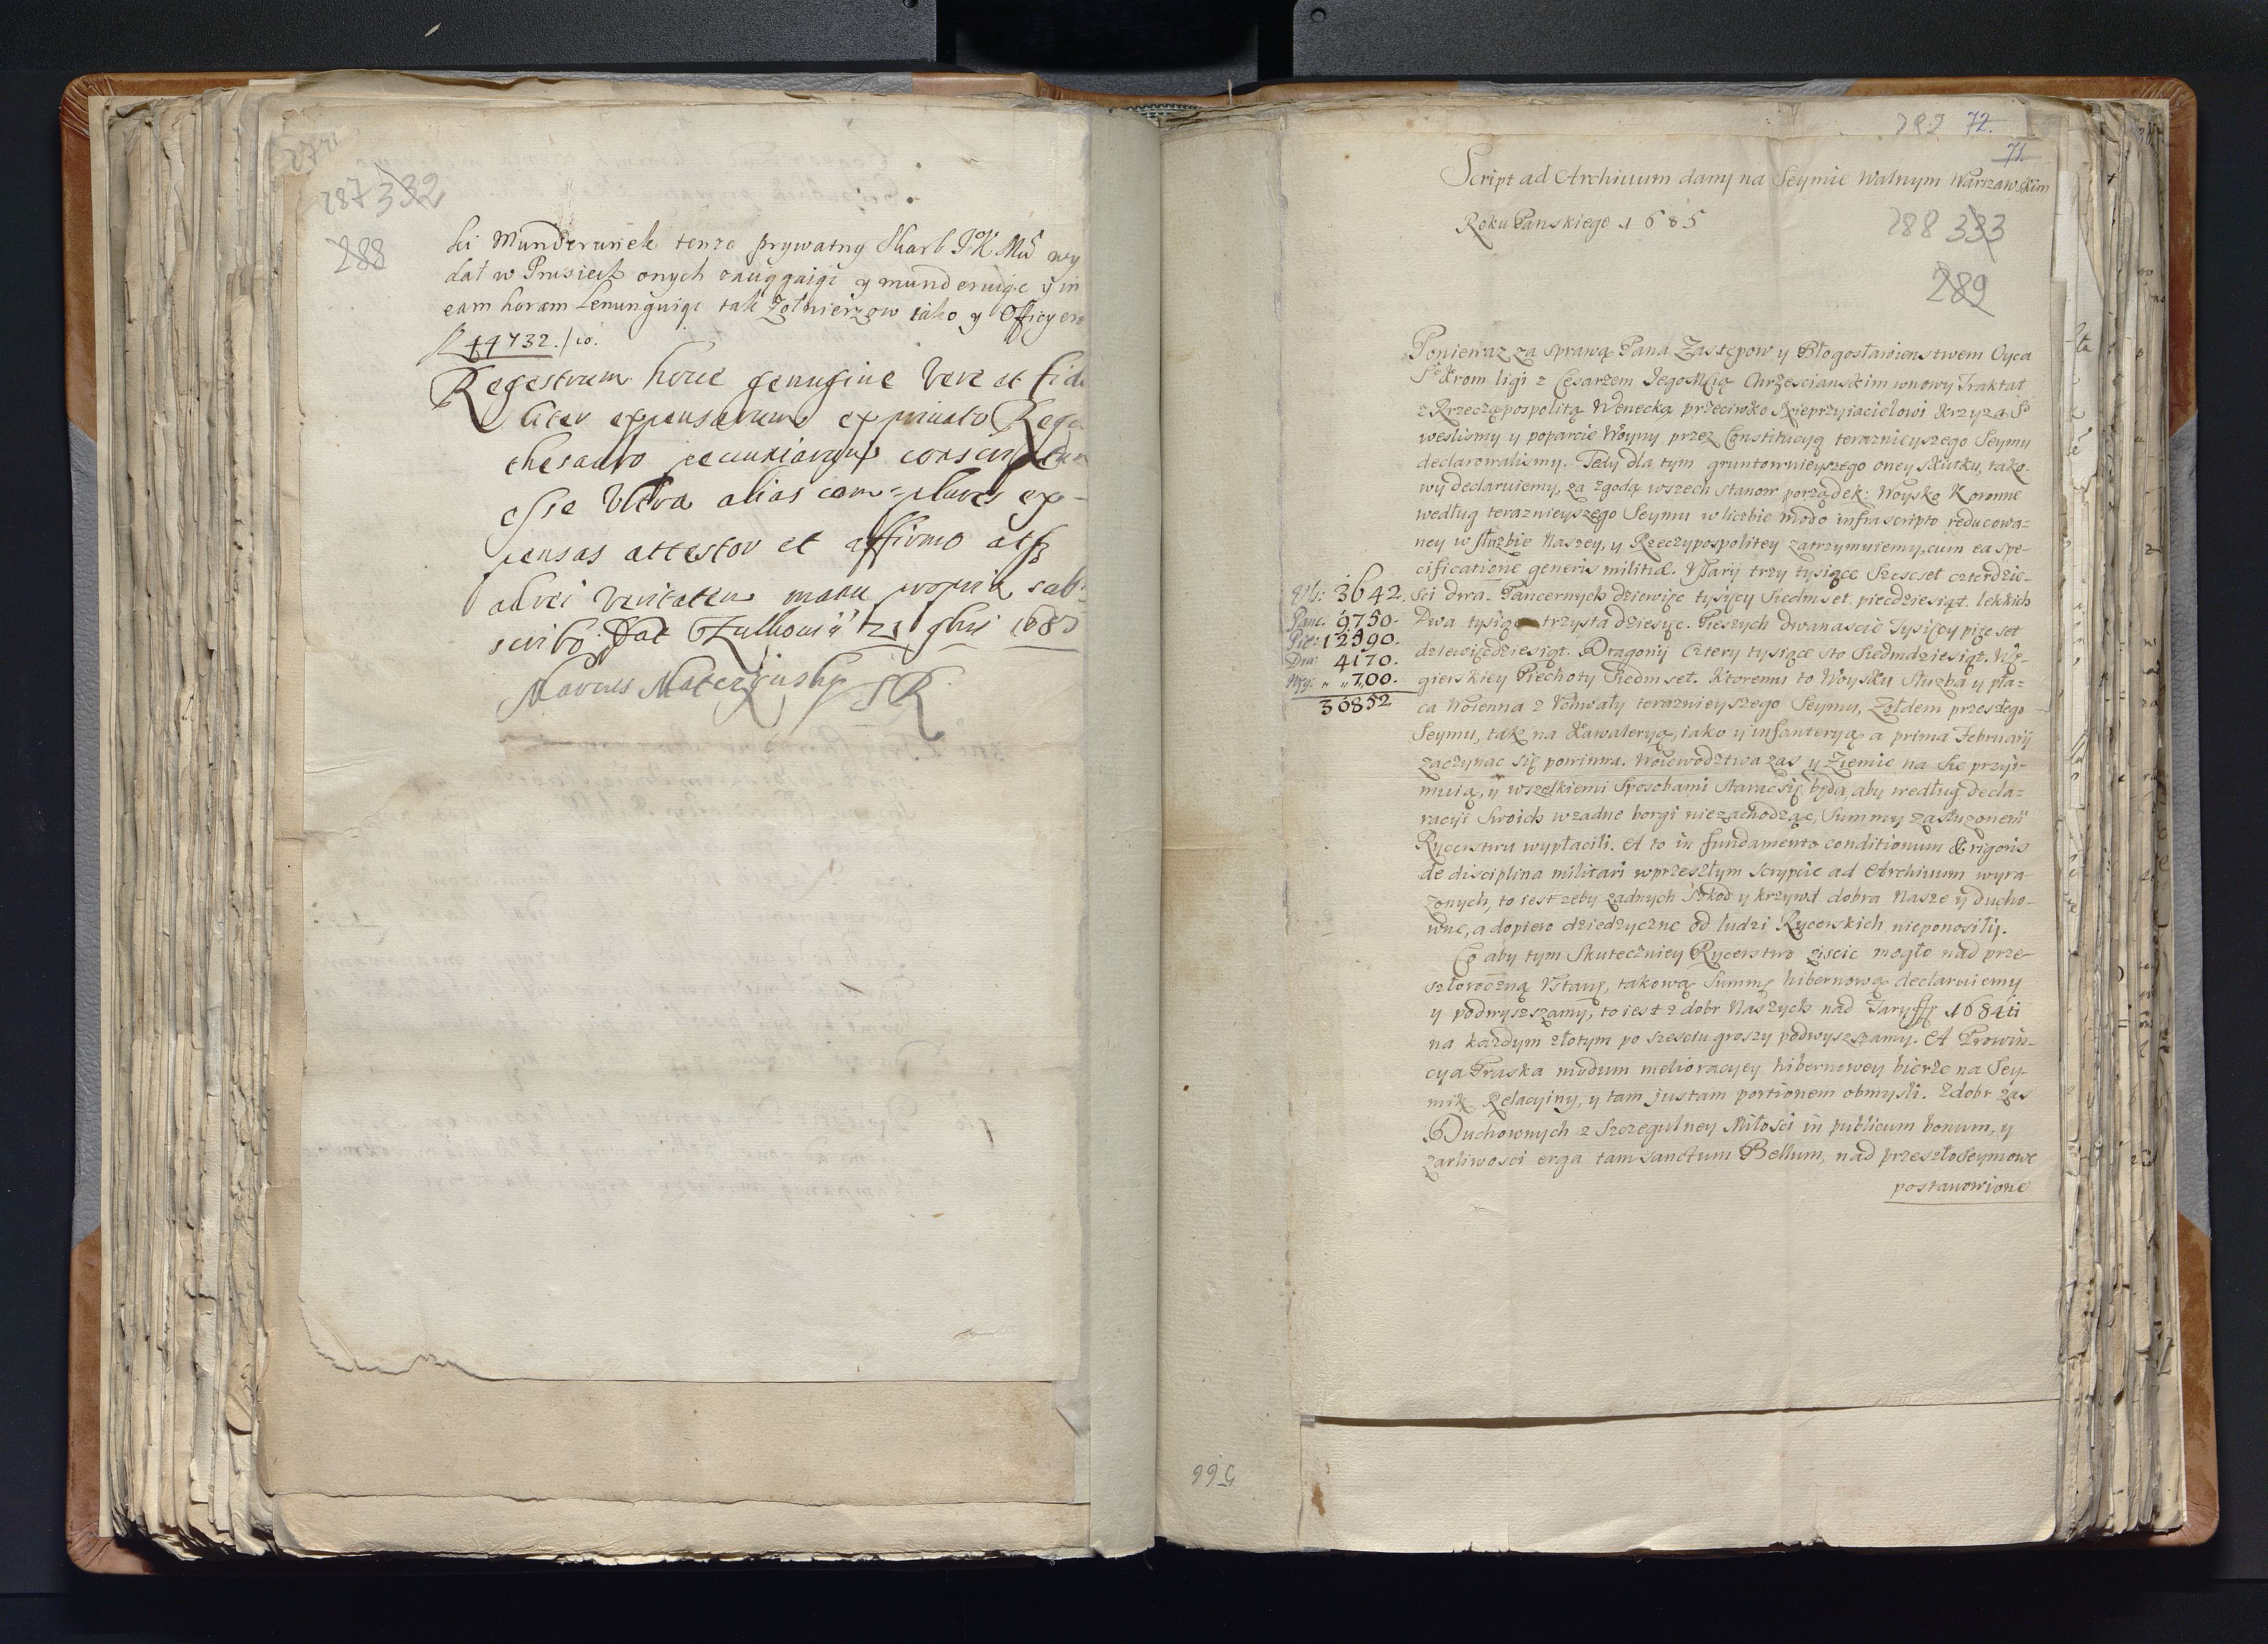 287 332
288
ki Munderunek tenże prywatny Skarb JKMci wy
dał w Prusiech onych zaciągając y munderuiąc y in
eam horam lenunguiąc tak Żołnierzow iako y Officyero
f 44732./10.
Regestrum hocce genuine vere et fide
liter expensarum ex privato Regio
thesauro pecuniarum conscriptum
esse Ultra alias com=plures ex-
pensas attestor et affirmo atq3
ad rei veritatem manu propria sub-
scribo. Dat Zulkowiæ 21 9bris 1685
Marcus Matczynsky SR
292 72.
71.
Script ad Archiuum dany na Seymie Walnym Warszawskim
Roku Panskiego 1685
288 333
289
Poniewaz za sprawą Pana Zastępow y Błogosławienstwem Oyca
Sgo krom ligi z Cesarzem JegoMcią Chrzescianskim wnowy Traktat
z Rzecząpospolitą Wenecką przeciwko Nieprzyiacielowi Krzyza So
weslismy y poparcie Woyny przez Constitucyą teraznieyszego Seymu
declarowalismy. Tedy dla tym gruntownieyszego oney skutku, tako-
wy declaruiemy, za zgodą wszech stanow porządek: Woysko Koronne
według teraznieyszego Seymu w liczbie modo infrascripto reducowa=
ney w słuzbie Naszey, y Rzeczypospolitey zatrzymuiemy, cum ea spe-
cificatione generis militiæ. Vsarij trzy tysiące Szescset czterdzie-
sci dwa. Pancernych dziewięc tysięcy Siedmset, piecdziesiąt. lekkich
Dwa tysiące trzysta dziesięc. Pieszych dwanascie Tysięcy pięcset
dziewięcdziesiąt. Dragonij Cztery tysiące sto Siedmdziesiąt. Wę-
gierskiey Piechoty Siedmset. Ktoremu to Woysku słuzba y pła=
ca Woienna z Vchwały teraznieyszego Seymu, Zołdem przeszłego
Seymu, tak na Kawaleryą, iako y infanteryą a prima Februarij
zaczynac się powinna. Woiewodztwa zas y Ziemie na Się przyi-
muią, y wszelkiemi Sposobami starac się będą, aby według decla=
racyi Swoich wzadne borgi niezachodząc, Summy zasłuzoney
Rycerstwu wypłacili. A to in fundamento conditionum & rigoris
de disciplina militari wprzeszłym scrypcie ad Archiuum wyra
zonych, to iest zeby zadnych Szkod y krzywd dobra Nasze y ducho-
wne, a dopiero dziedzyczne od ludzi Rycerskich nieponosiły.
Co aby tym Skuteczniey Rycerstwo ziscic mogło nad prze-
szłoroczną Vstawę, takową Summę hibernową declaruiemy
y podwyszszamy, to iest z dobr Naszych nad Taryffę 1684ti
na kazdym złotym po szesciu groszy podwyszszamy. A Prowin-
cya Pruska modum melioracyey hibernowey bierze na Sey-
mik Relacyiny, y tam justam portionem obmysli. Zdobr zas
Duchownych z Szczegulney Miłosci in publicum bonum, y
zarliwosci erga tam sanctum Bellum, nad przeszłoseymowe
postanowione
3642.
Panc. 9750.
Pie: 12590.
Dra: 4170.
Węg: " " 700.
30852
566